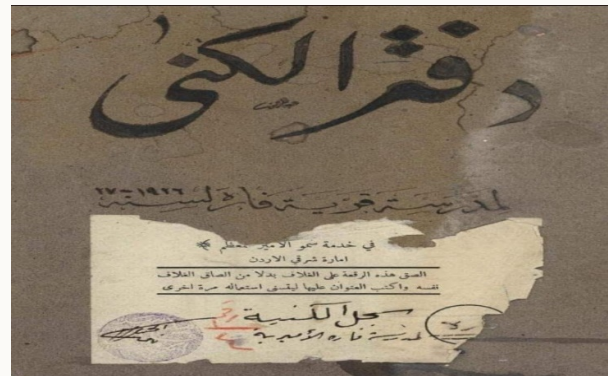 دفتر الكنى
لمدرسة قرية فارة لسنة ١٩٢٦-٢٧
في خدمة سمو الامير المعظم
امارة شرقي الاردن
الصق هذه الرقعة على الغلاف بدلا من الصاق الغلاف
نفسه واكتب العنوان عليها ليتسنى استعماله مرة اخرى
سجل الكنية
لمدرسة فاره الأميرية